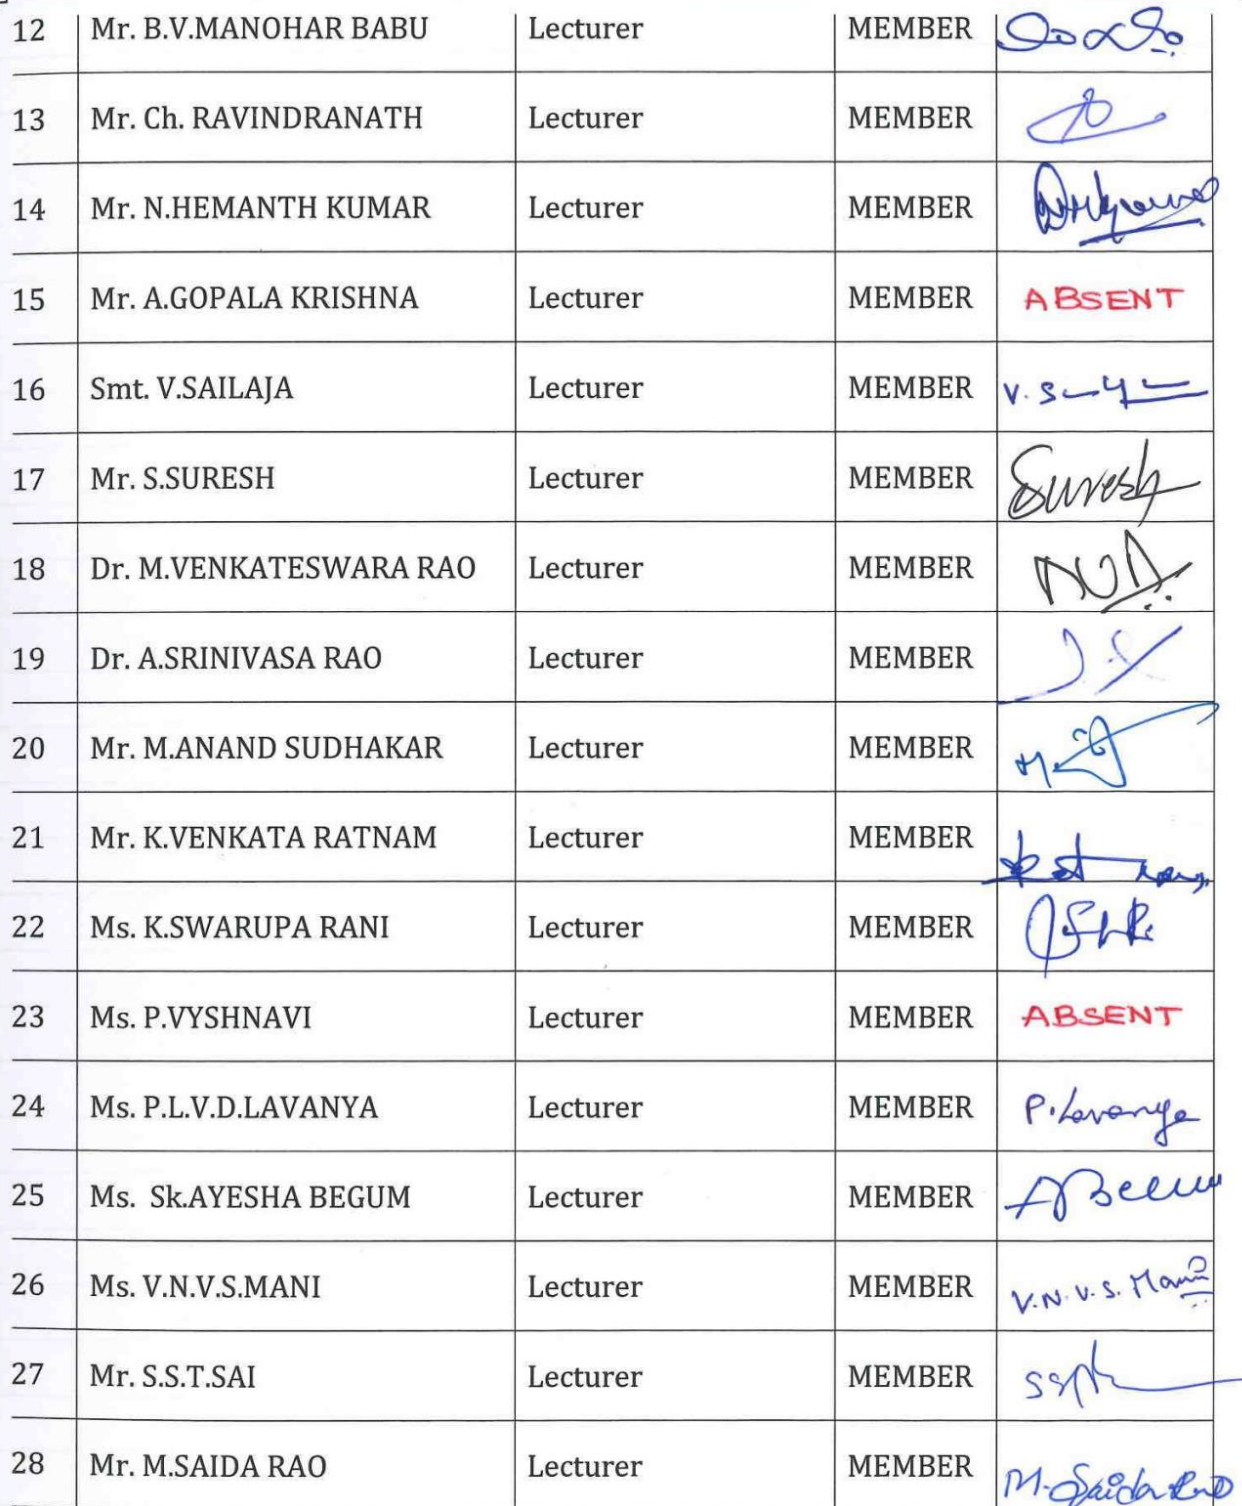 12 Mr. B.V.MANOHAR BABU Lecturer MEMBER
13 Mr. Ch. RAVINDRANATH Lecturer MEMBER
14 Mr. N.HEMANTH KUMAR Lecturer MEMBER
15 Mr. A.GOPALA KRISHNA Lecturer MEMBER ABSENT
16 Smt. V.SAILAJA Lecturer MEMBER
17 Mr. S.SURESH Lecturer MEMBER Suresh
18 Dr. M.VENKATESWARA RAO Lecturer MEMBER
19 Dr. A.SRINIVASA RAO Lecturer MEMBER
20 Mr. M.ANAND SUDHAKAR Lecturer MEMBER
21 Mr. K.VENKATA RATNAM Lecturer MEMBER
22 Ms. K.SWARUPA RANI Lecturer MEMBER
23 Ms. P.VYSHNAVI Lecturer MEMBER ABSENT
24 Ms. P.L.V.D.LAVANYA Lecturer MEMBER P.Lavanya
25 Ms. Sk.AYESHA BEGUM Lecturer MEMBER
26 Ms. V.N.V.S.MANI Lecturer MEMBER V.N.V.S. Mani
27 Mr. S.S.T.SAI Lecturer MEMBER
28 Mr. M.SAIDA RAO Lecturer MEMBER M.Saida Rao